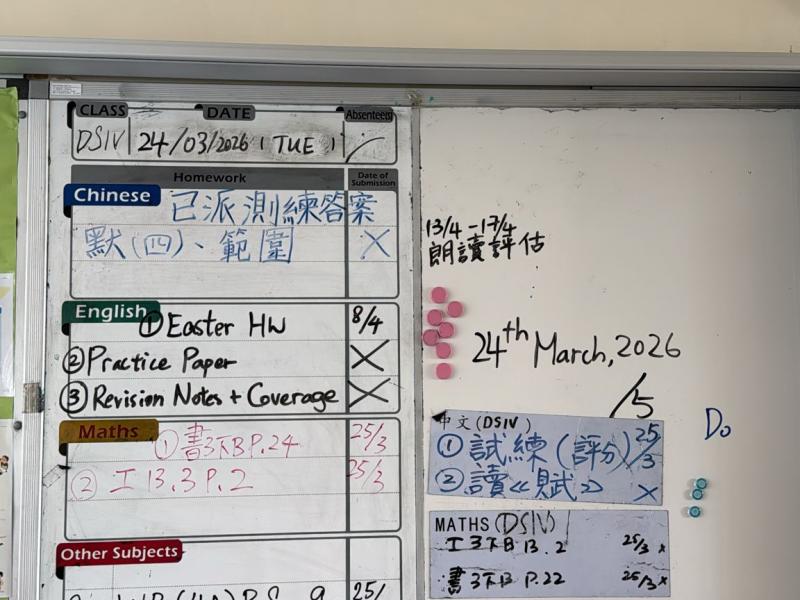 CLASS DATE Absentee(s)
DSIV 24/03/2026 (TUE) /
Homework Date of Submission
Chinese 已派測練答案
默(四)、範圍 X
English ① Easter HW 8/4
② Practice Paper X
③ Revision Notes + Coverage X
Maths ① 書3下B P.24 25/3
② 工 13.3 P.2 25/3
Other Subjects
13/4 - 17/4
朗讀評估
24th March, 2026
/5
中文 (DSIV)
① 試練 (評分) 25/3
② 讀
X
MATHS (DSIV)
工 3下B 13.2 25/3 x
書 3下B P.22 25/3 x